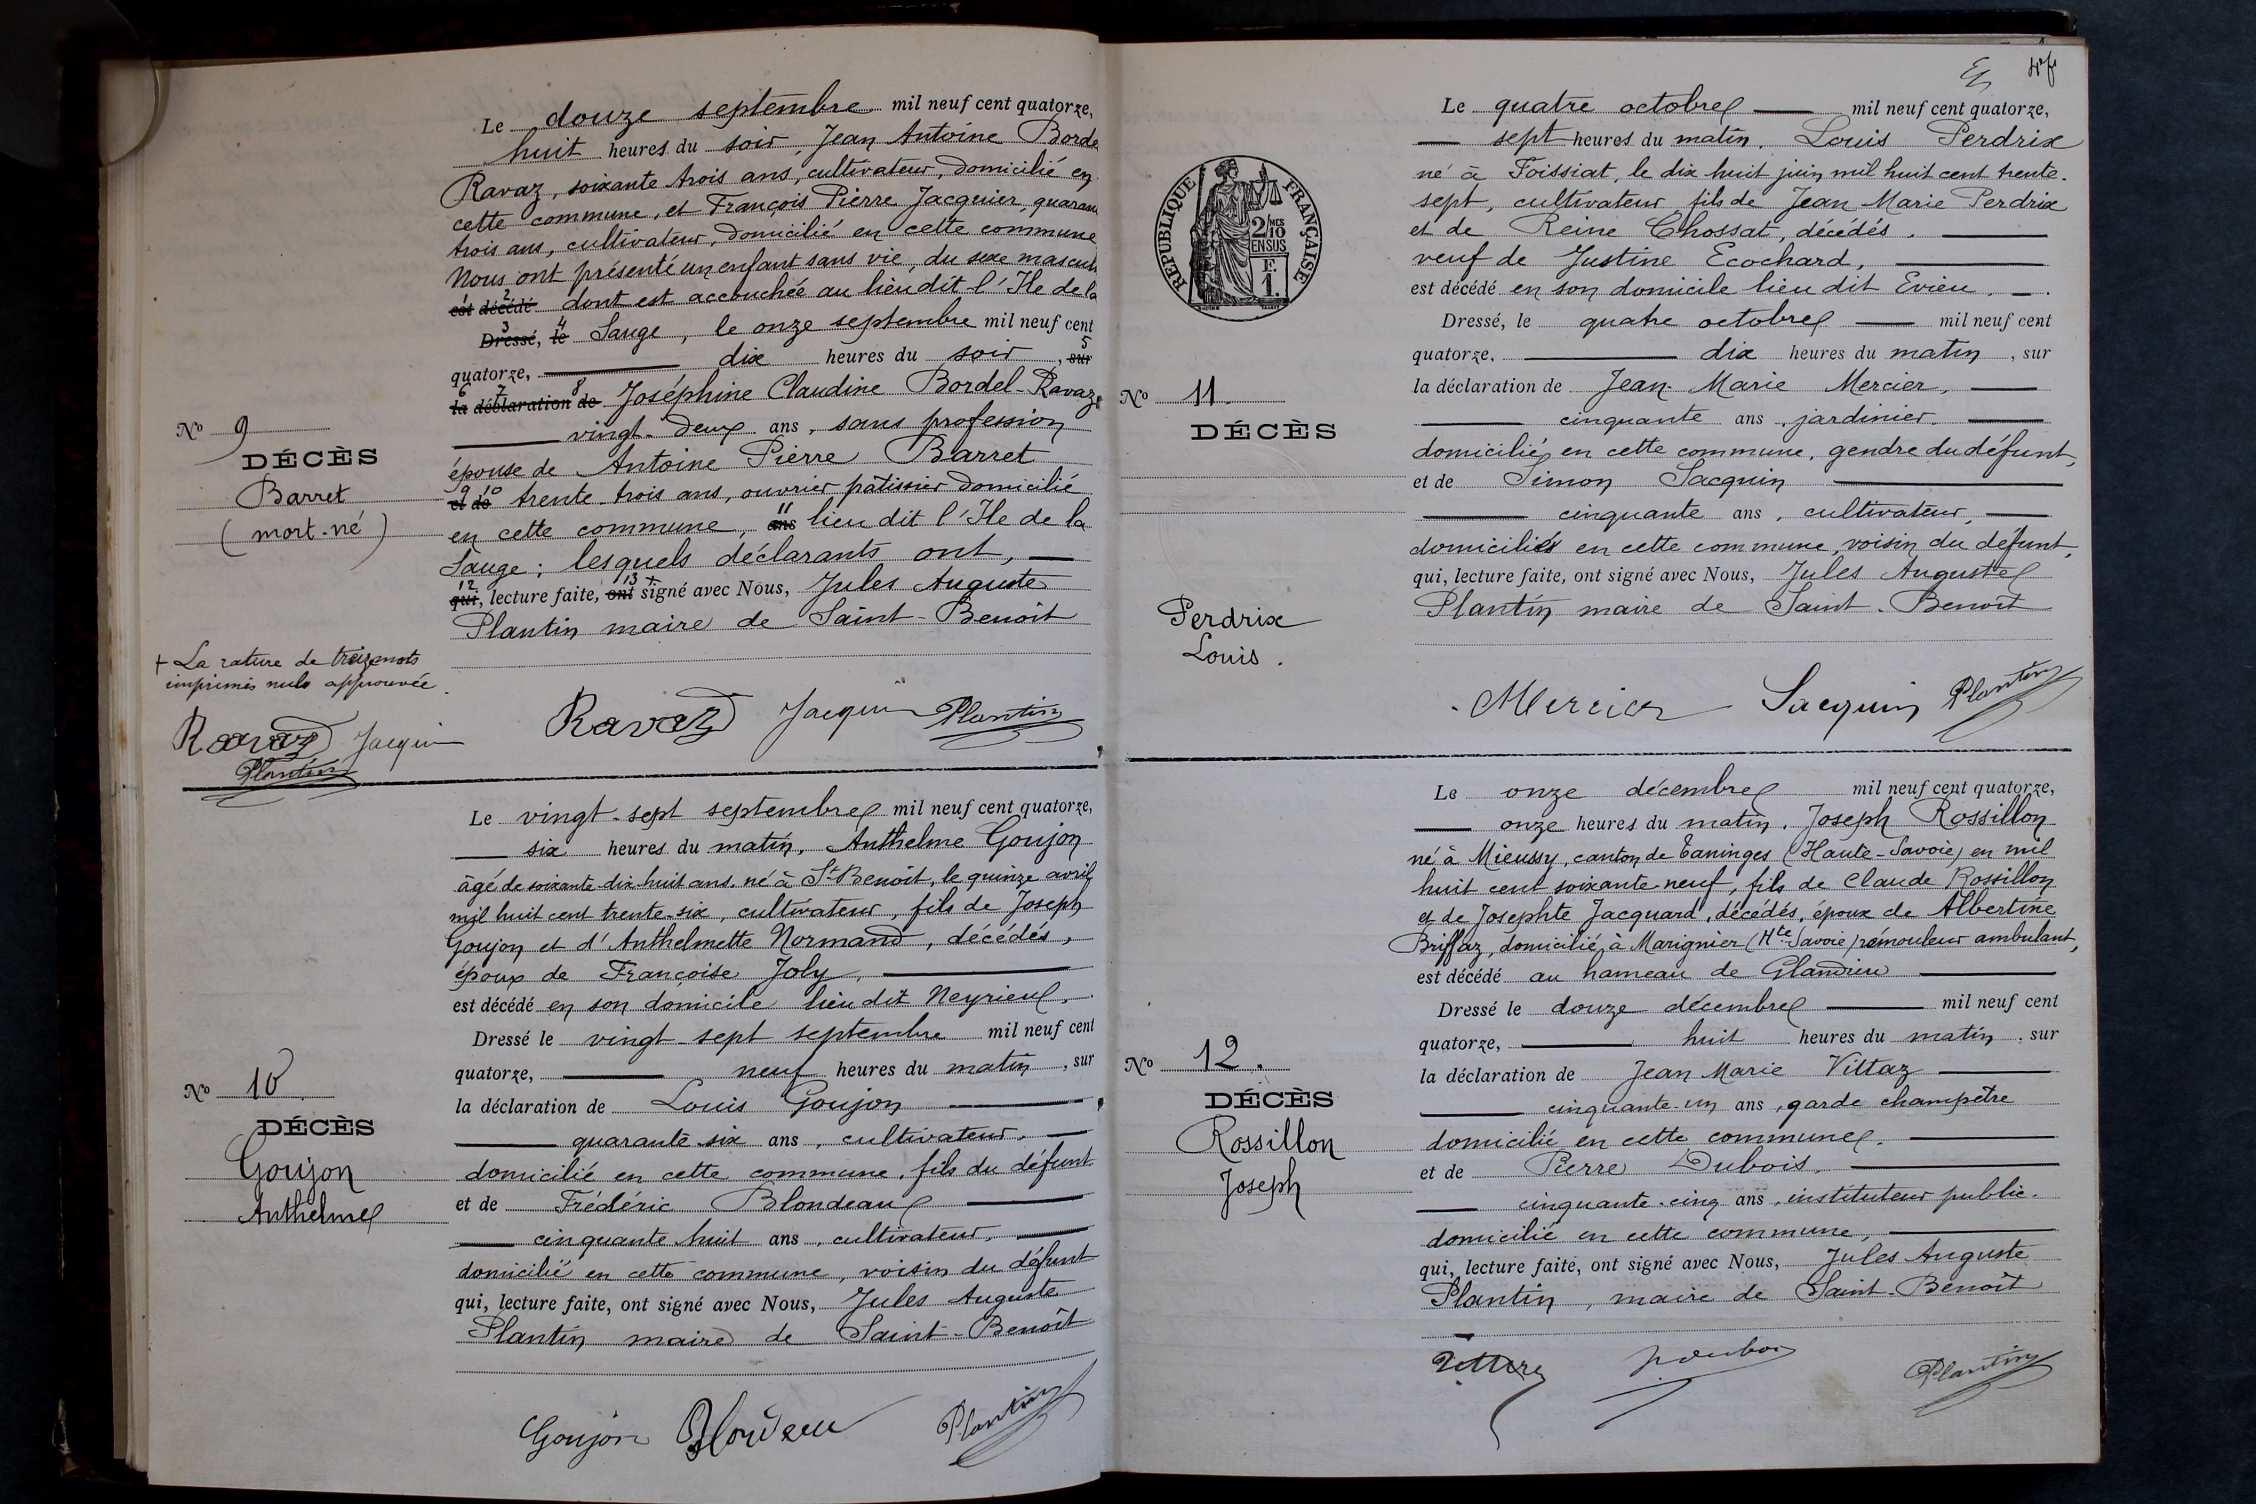 Le douze septembre mil neuf cent quatorze,
huit heures du soir, Jean Antoine Borde
Ravaz, soixante trois ans, cultivateur, domicilié en
cette commune, et François Pierre Jacquier, quaran
trois ans, cultivateur, domicilié en cette commune
Nous ont présenté un enfant sans vie, du sexe mascul
1 2
est décédé dont est accouchée au lieu dit l'Ile de la
3 4
Dressé, le Sauge, le onze septembre mil neuf cent
5
quatorze, dix heures du soir, sur
6 7 8
la déclaration de Joséphine Claudine Bordel-Ravaz,
vingt-deux ans, sans profession
épouse de Antoine Pierre Barret
9 10
et de trente-trois ans, ouvrier pâtissier domicilié
11
en cette commune, ans lieu dit l'Ile de la
Sauge; lesquels déclarants ont,
12 13 +
qui, lecture faite, ont signé avec Nous, Jules Auguste
Plantin maire de Saint-Benoît
No 9
DÉCÈS
Barret
(mort-né)
+ La rature de treize mots
imprimés nuls approuvée.
Ravaz Jacquier
Plantin
Ravaz Jacquier Plantin
Le vingt-sept septembre mil neuf cent quatorze,
six heures du matin, Anthelme Goujon
âgé de soixante-dix-huit ans, né à St-Benoît, le quinze avril
mil huit cent trente-six, cultivateur, fils de Joseph
Goujon et d'Anthelmette Normand, décédés,
époux de Françoise Joly,
est décédé en son domicile lieu dit Neyrieu,
Dressé le vingt-sept septembre mil neuf cent
quatorze, neuf heures du matin, sur
la déclaration de Louis Goujon
quarante-six ans, cultivateur,
domicilié en cette commune, fils du défunt
et de Frédéric Blondeau
cinquante-huit ans, cultivateur,
domicilié en cette commune, voisin du défunt
qui, lecture faite, ont signé avec Nous, Jules Auguste
Plantin maire de Saint-Benoît
No 10
DÉCÈS
Goujon
Anthelme
Goujon Blondeau Plantin
RÉPUBLIQUE FRANÇAISE
2/10 MES
EN SUS
F.
1.
Le quatre octobre mil neuf cent quatorze,
sept heures du matin, Louis Perdrix
né à Foissiat, le dix huit juin mil huit cent trente-
sept, cultivateur fils de Jean Marie Perdrix
et de Reine Chossat, décédés,
veuf de Justine Ecochard,
est décédé en son domicile lieu dit Evieu.
Dressé, le quatre octobre mil neuf cent
quatorze, dix heures du matin, sur
la déclaration de Jean-Marie Mercier,
cinquante ans, jardinier,
domicilié, en cette commune, gendre du défunt,
et de Simon Sacquin
cinquante ans, cultivateur,
domiciliés en cette commune, voisin du défunt,
qui, lecture faite, ont signé avec Nous, Jules Auguste
Plantin maire de Saint-Benoît
No 11.
DÉCÈS
Perdrix
Louis.
Mercier Sacquin Plantin
Le onze décembre mil neuf cent quatorze,
onze heures du matin, Joseph Rossillon
né à Mieussy, canton de Taninges (Haute-Savoie) en mil
huit cent soixante-neuf, fils de Claude Rossillon
et de Josephte Jacquard, décédés, époux de Albertine
Briffaz, domicilié à Marignier (Hte-Savoie) rémouleur ambulant,
est décédé au hameau de Glandieu
Dressé le douze décembre mil neuf cent
quatorze, huit heures du matin, sur
la déclaration de Jean Marie Vittaz
cinquante-un ans, garde champêtre
domicilié en cette commune,
et de Pierre Dubois,
cinquante-cinq ans, instituteur public.
domicilié en cette commune,
qui, lecture faite, ont signé avec Nous, Jules Auguste
Plantin, maire de Saint-Benoît
No 12.
DÉCÈS
Rossillon
Joseph
Plantin